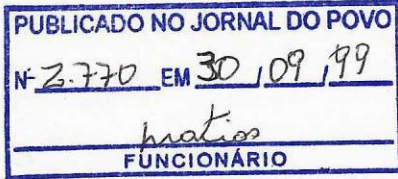 PUBLICADO NO JORNAL DO POVO
Nº 2.770 EM 30 / 09 / 99
FUNCIONÁRIO